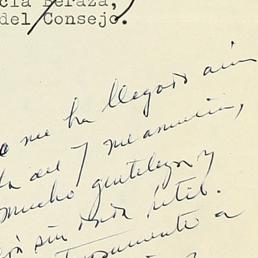 cia Beraza,
del Consejo.
o me ha llegado aún
la del 7 me anuncia,
mucho gentileza y
ón sin duda útil.
atentamente a